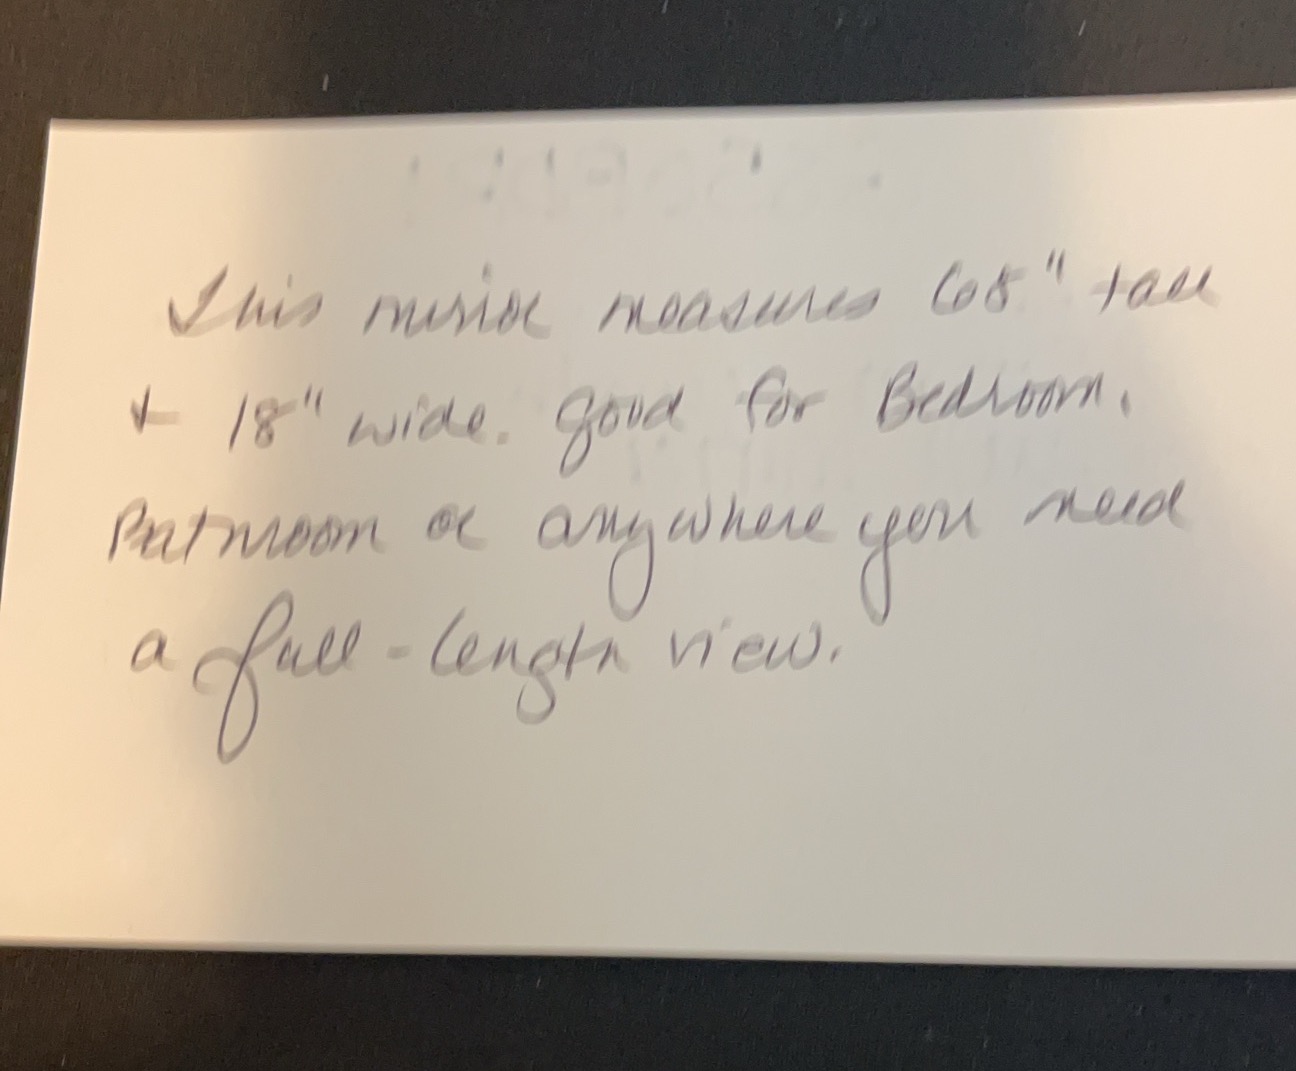 This mirror measures 68" tall
+ 18" wide. good for Bedroom,
Bathroom or anywhere you need
a full-length view.